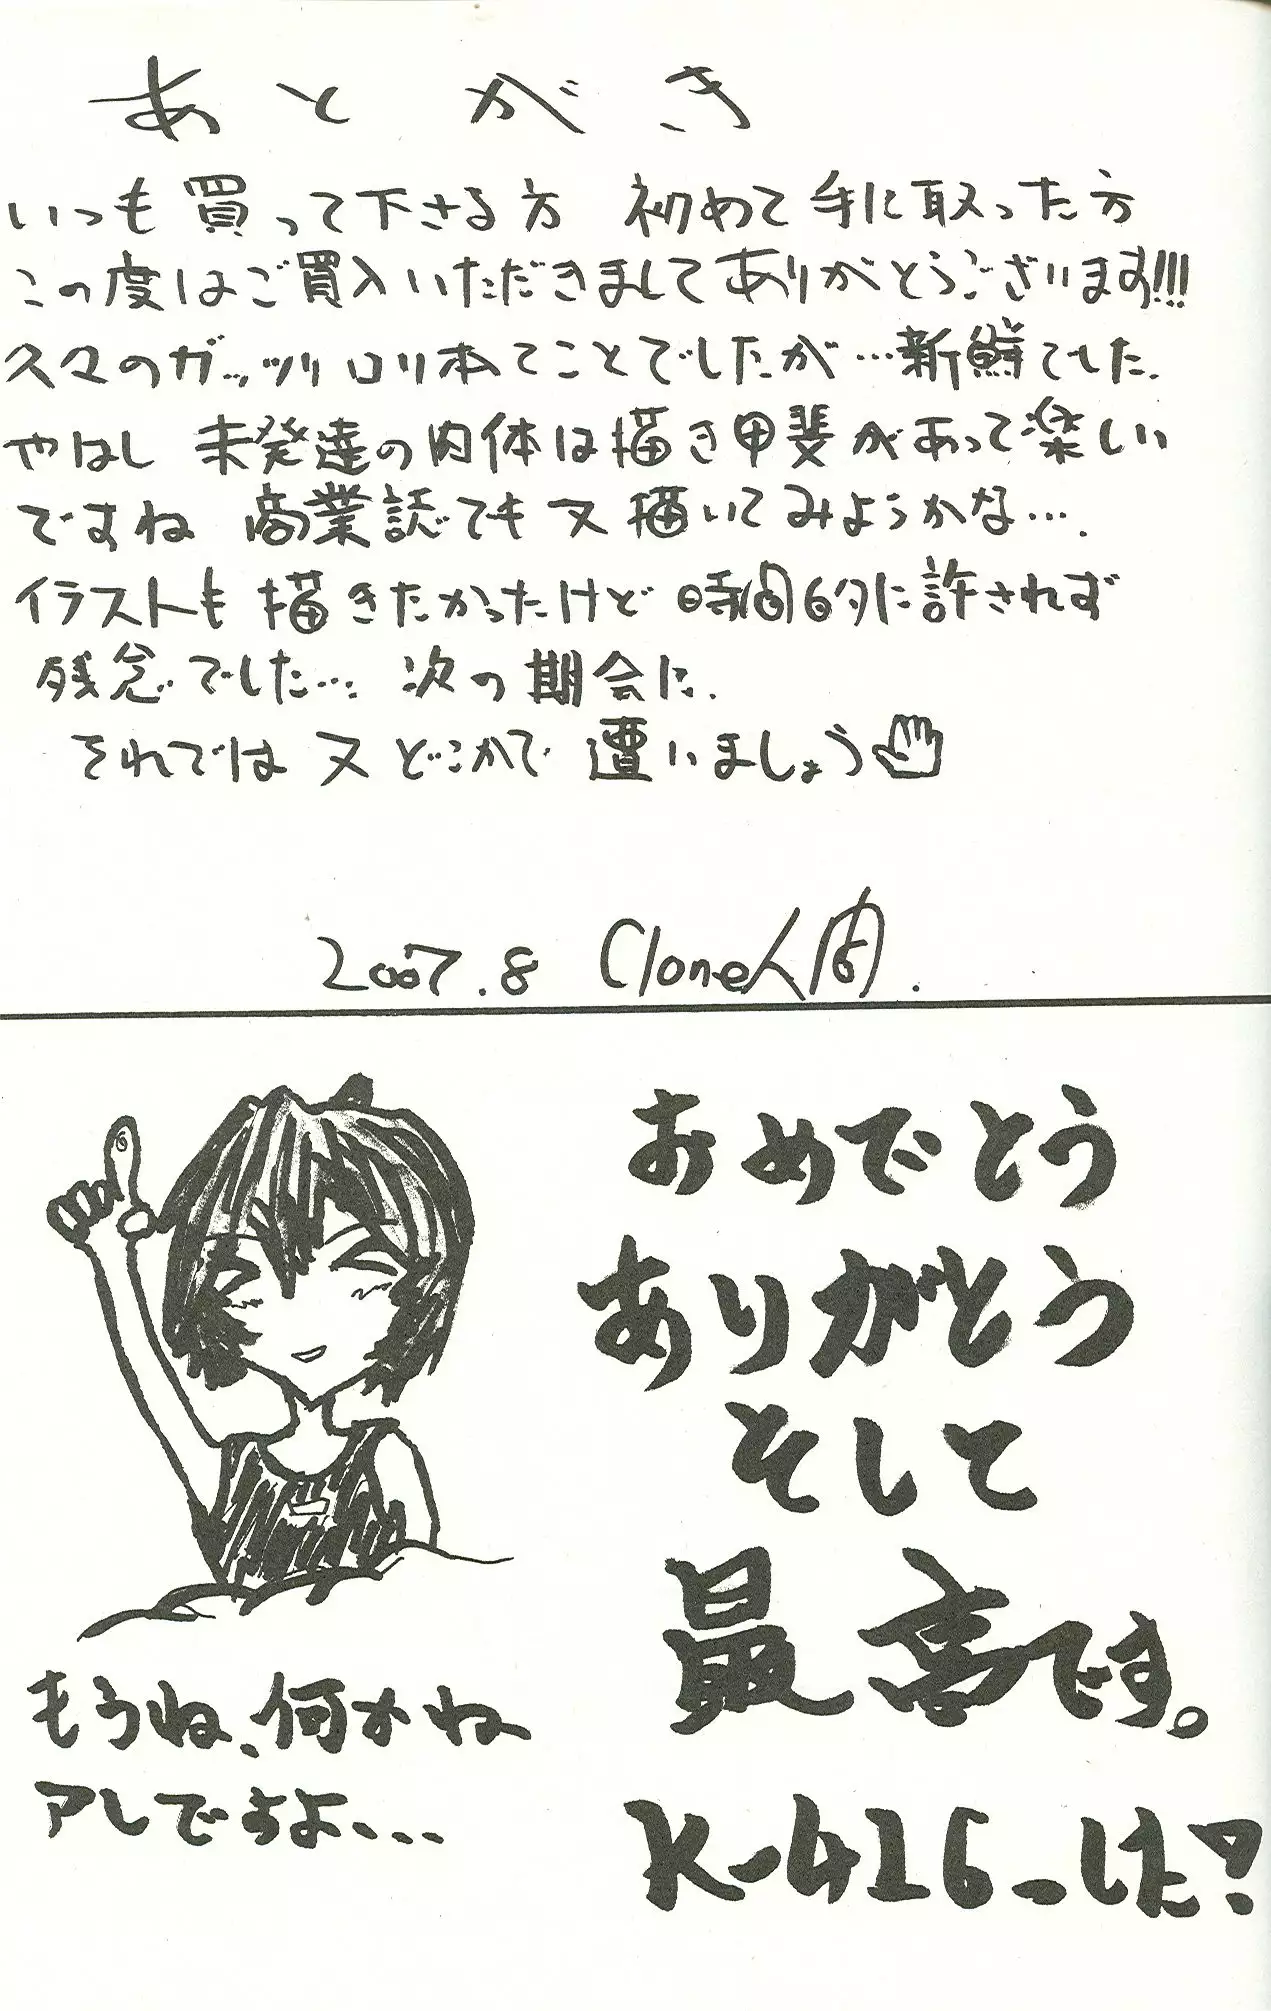 あとがき
いつも買って下さる方 初めて手に取った方
この度はご買入いただきましてありがとうございます!!!
久々のガッツリロリ本てことでしたが…新鮮でした.
やはし 未発達の肉体は描き甲斐があって楽しい
ですね 商業誌でも又描いてみようかな….
イラストも描きたかったけど時間的に許されず
残念でした… 次の期会に.
それでは又どこかで遭いましょう
2007.8 Clone人間.
おめでとう
ありがとう
そして
最高です。
K-416っした?
もうね、何かね
アレですよ、、、